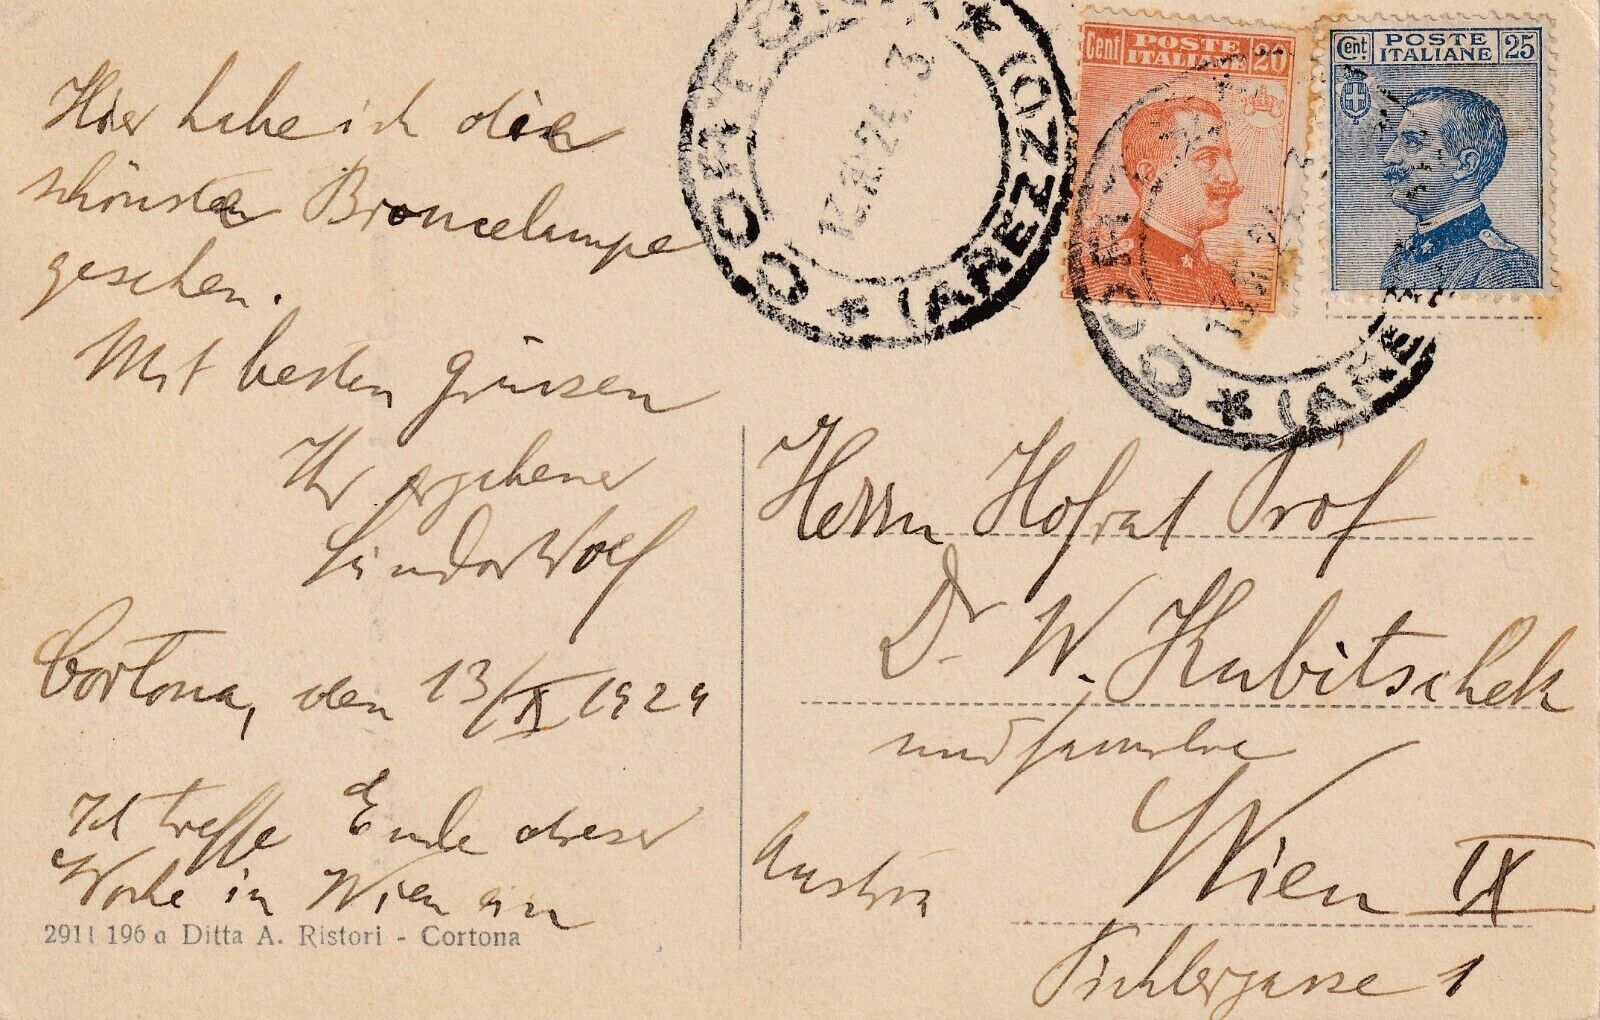 Hier habe ich die
schönste Broncelampe
gesehen.
Mit besten Grüssen
Ihr ergebener
Sándor Wolf
Cortona, den 13/X 1924
Ich treffe Ende dieser
Woche in Wien ein
2911 196 a Ditta A. Ristori - Cortona
CORTONA * (AREZZO) *
Cent POSTE ITALIANE 20
Cent. POSTE ITALIANE 25
CORTONA * (AREZZO)
Herrn Hofrat Prof
Dr. W. Kubitschek
und Familie
Wien IX
Austria
Pichlergasse 1